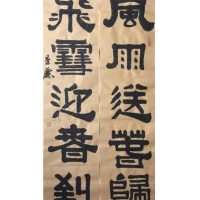 風雨送春歸
飛雪迎春到